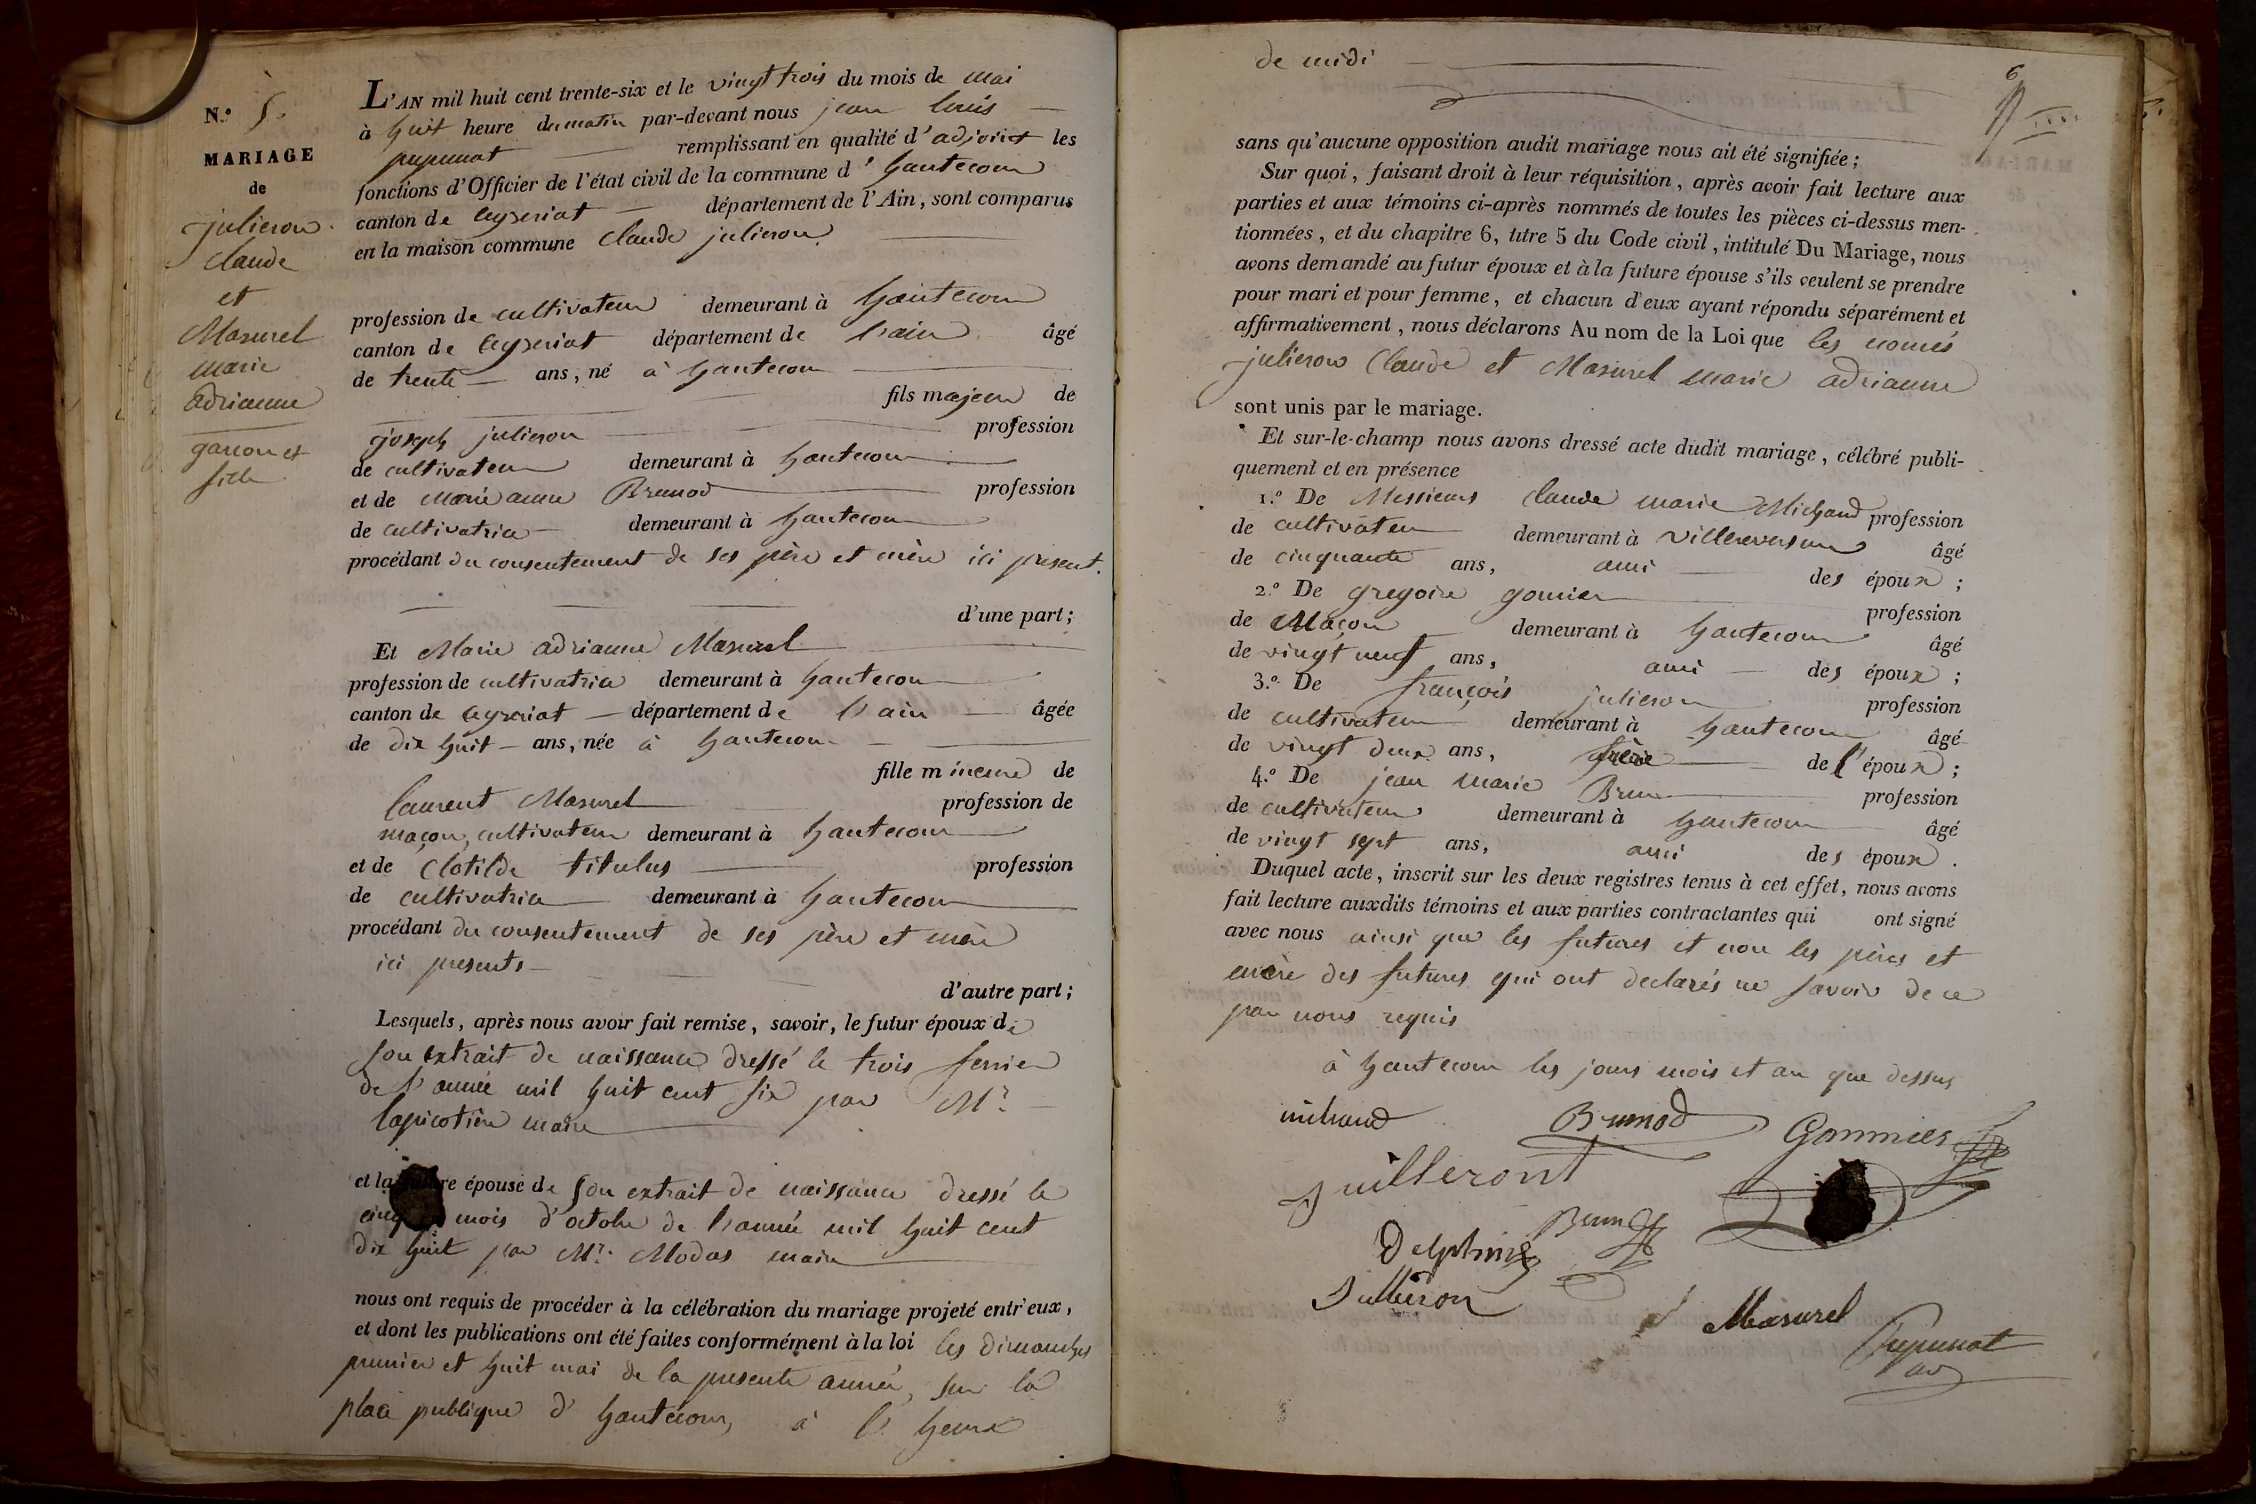 N.º 5.
MARIAGE
de
julieron
claude
et
Masurel
marie
adrianne
garcon et
fille
L'AN mil huit cent trente-six et le vingt trois du mois de mai
à huit heure du matin par-devant nous jean louis
pupunat remplissant en qualité d'adjoint les
fonctions d'Officier de l'état civil de la commune d'hautecour
canton de Ceyzeriat département de l'Ain, sont comparus
en la maison commune claude julieron
profession de cultivateur demeurant à hautecour
canton de Ceyzeriat département de l'ain âgé
de trente ans, né à hautecour
fils majeur de
joseph julieron profession
de cultivateur demeurant à hautecour
et de marie anne Brunod profession
de cultivatrice demeurant à hautecour
procédant du consentement de ses père et mère ici present.
d'une part;
Et Marie adrianne Masurel
profession de cultivatrice demeurant à hautecour
canton de Ceyzeriat département de l'ain âgée
de dix huit ans, née à hautecour
fille mineure de
laurent Masurel profession de
maçon, cultivateur demeurant à hautecour
et de Clotilde titulus profession
de cultivatrice demeurant à hautecour
procédant du consentement de ses père et mère
ici presents
d'autre part;
Lesquels, après nous avoir fait remise, savoir, le futur époux de
son extrait de naissance dressé le trois fevrier
de l'année mil huit cent six par Mr.
lapicotière maire
et la épouse de son extrait de naissance dressé le
cinq mois d'octobre de l'année mil huit cent
dix huit par Mr. Modas maire
nous ont requis de procéder à la célébration du mariage projeté entr'eux,
et dont les publications ont été faites conformément à la loi les dimanches
premier et huit mai de la presente année, sur la
place publique d'hautecour, à l'heure
de midi
6
sans qu'aucune opposition audit mariage nous ait été signifiée;
Sur quoi, faisant droit à leur réquisition, après avoir fait lecture aux
parties et aux témoins ci-après nommés de toutes les pièces ci-dessus men-
tionnées, et du chapitre 6, titre 5 du Code civil, intitulé Du Mariage, nous
avons demandé au futur époux et à la future épouse s'ils veulent se prendre
pour mari et pour femme, et chacun d'eux ayant répondu séparément et
affirmativement, nous déclarons Au nom de la Loi que les només
julieron Claude et Masurel marie adrianne
sont unis par le mariage.
Et sur-le-champ nous avons dressé acte dudit mariage, célébré publi-
quement et en présence
1.º De Messieurs claude marie Michaud profession
de cultivateur demeurant à villereversure âgé
de cinquante ans, ami des époux;
2.º De gregoire gomier profession
de Maçon demeurant à hautecour âgé
de vingt neuf ans, ami des époux;
3.º De françois julieron profession
de cultivateur demeurant à hautecour âgé
de vingt deux ans, frère de l'époux;
4.º De jean marie Brun profession
de cultivateur demeurant à hautecour âgé
de vingt sept ans, ami des époux.
Duquel acte, inscrit sur les deux registres tenus à cet effet, nous avons
fait lecture auxdits témoins et aux parties contractantes qui ont signé
avec nous ainsi que les futures et non les pères et
mère des futures qui ont declarés ne savoir de ce
par nous requis
à hautecour les jours mois et an que dessus
michaud Brunod Gommier
Juilleront
Brun
Delphine
Julliéron
Masurel
Pupunat
adj